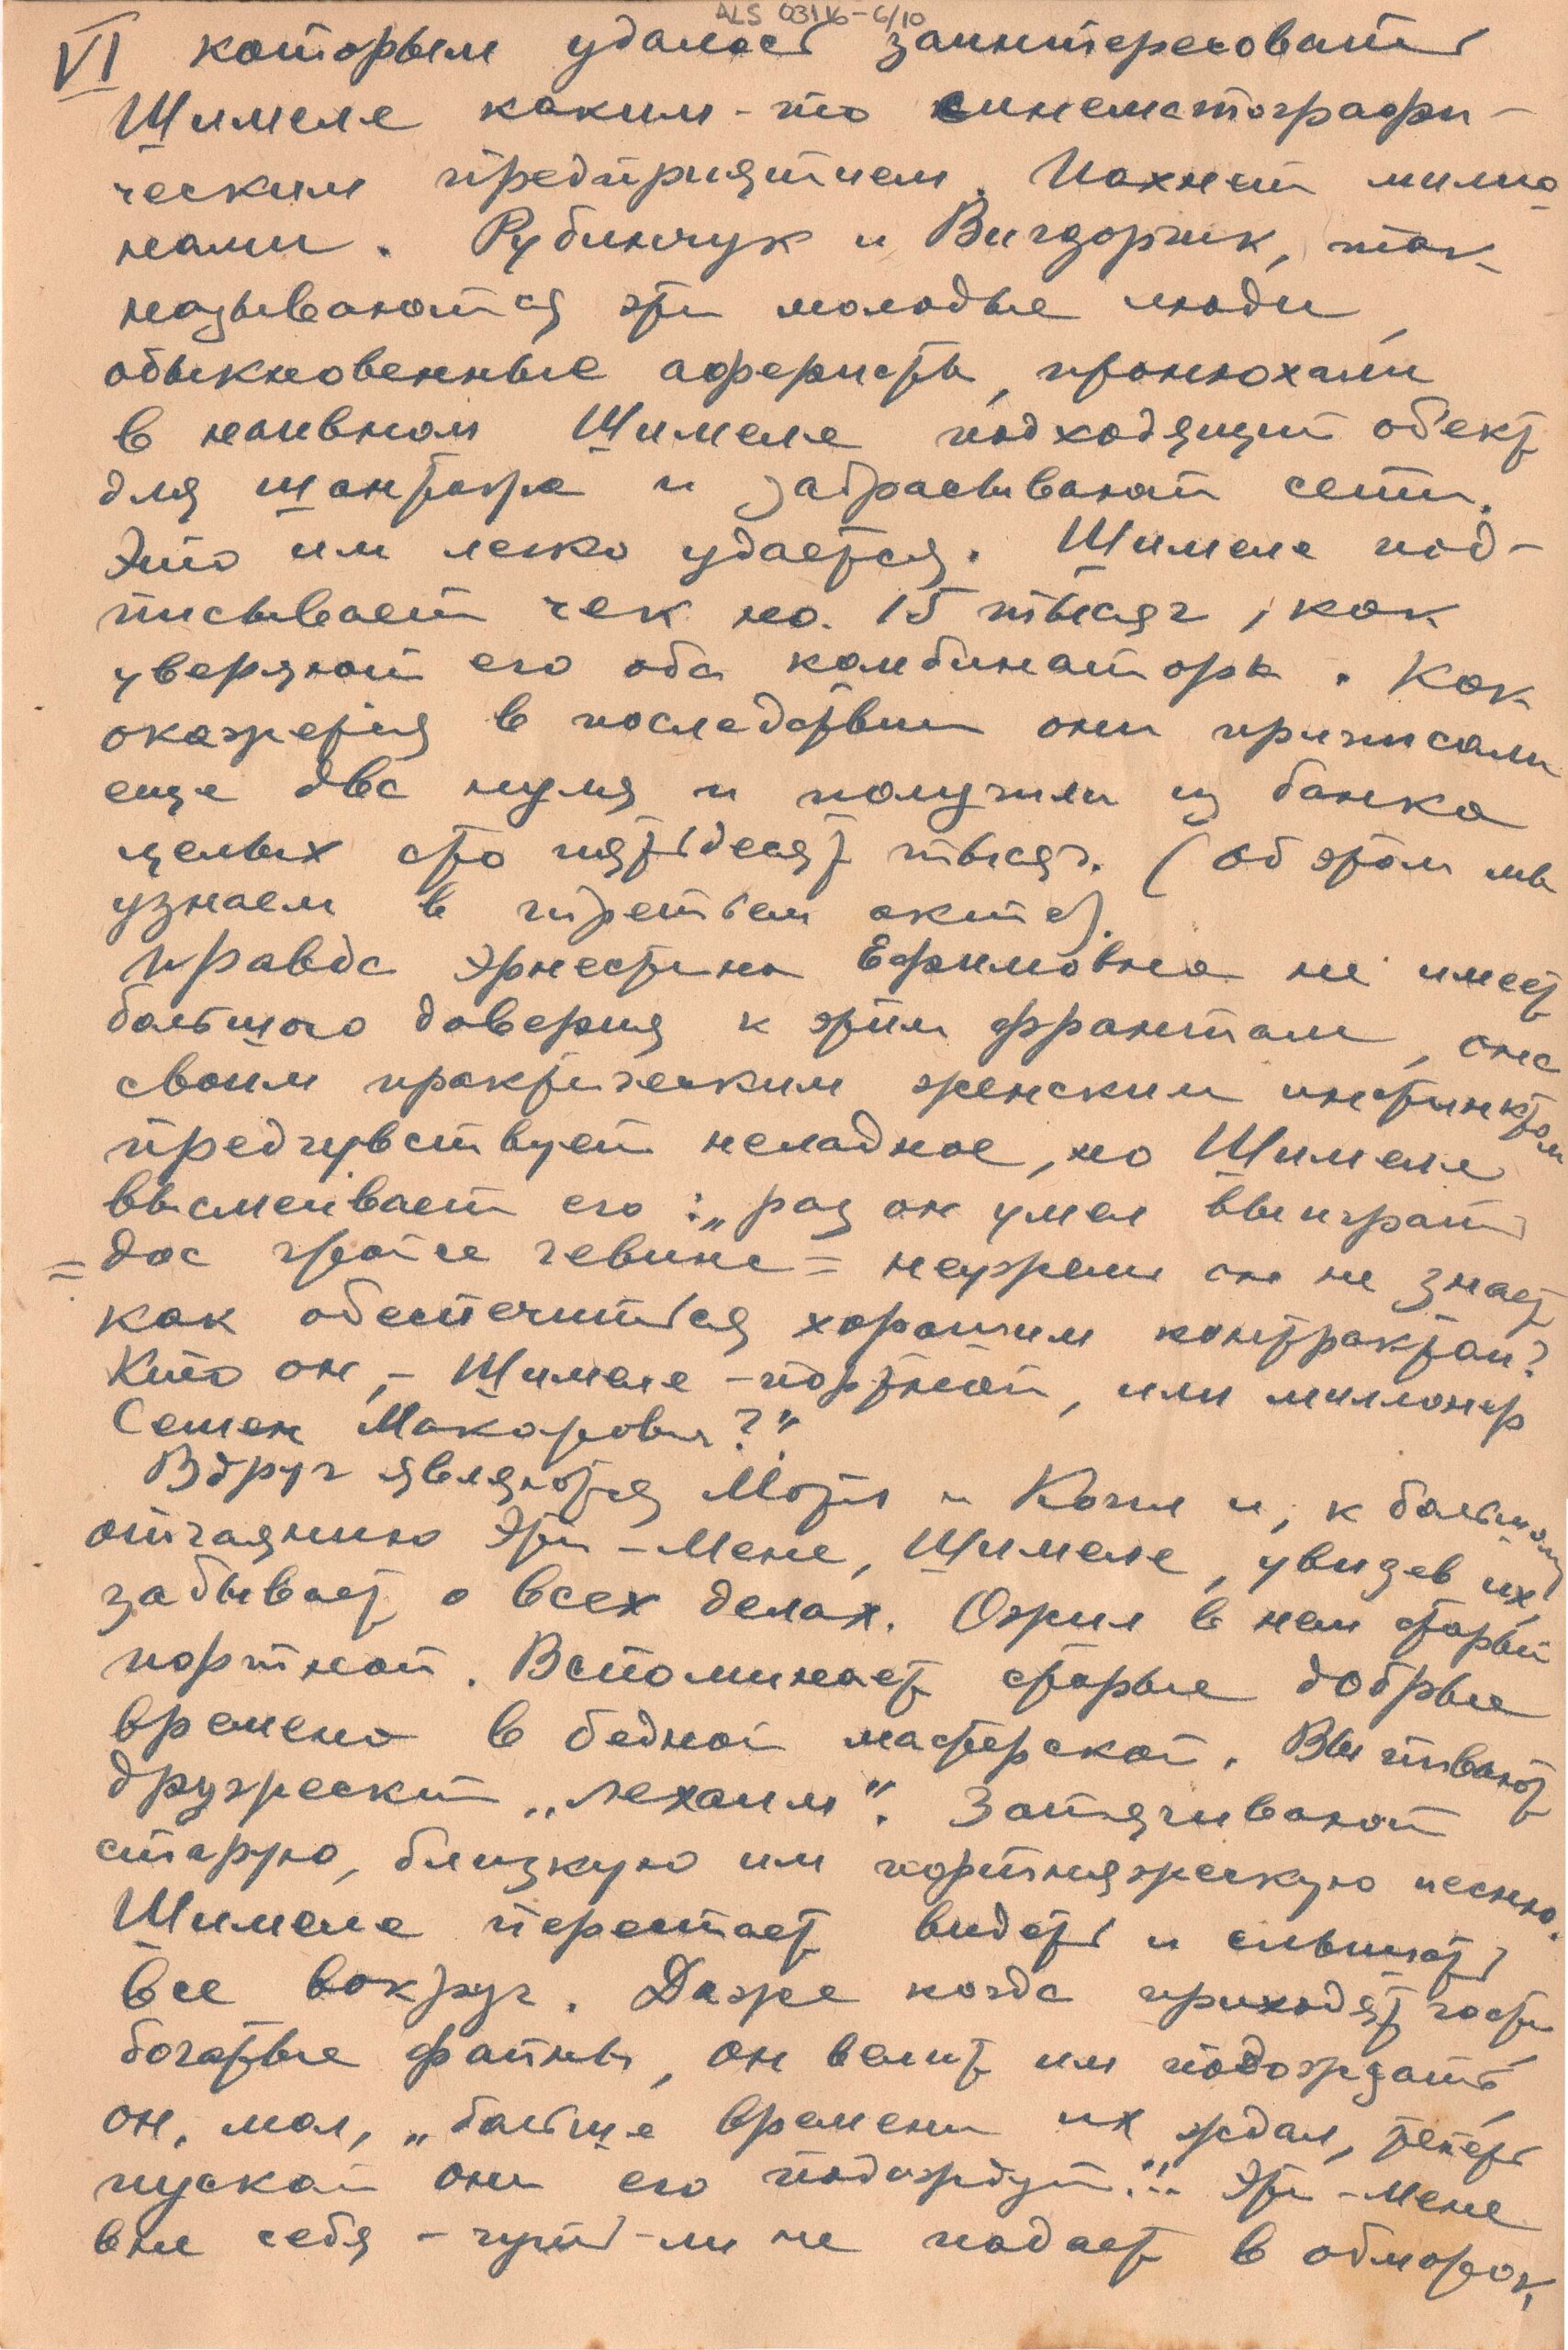 ALS 03116-6/10
VI которым удалось заинтересовать
Шимеле каким-то синематографи-
ческим предприятием. Пахнет милио
нами. Рубинчук и Вигдорчик, так
называются эти молодые люди,
обыкновенные аферисты, пронюхали
в наивном Шимеле подходящий об'ект
для шантажа и забрасывают сети.
Это им легко удается. Шимеле под-
писывает чек на 15 тысяч, как
уверяют его оба комбинатора. Как
окажется в последствии они приписали
еще два нуля и получили из банка
целых сто пятьдесят тысяч. (Об этом мы
узнаем в третьем акте).
Правда Эрнестина Ефимовна не имеет
большого доверия к этим франтам, она
своим практическим женским инстинктом
предчувствует неладное, но Шимеле
высмеивает его: „раз он умел выиграть
= дос гройсе гевинс = неужели он не знает
как обеспечиться хорошим контрактом?
Кто он, - Шимеле-портной, или миллонер
Семен Макарович?"
Вдруг являются Мотл и Копл и, к большому
отчаянию Эти-Мене, Шимеле, увидев их,
забывает о всех делах. Ожил в нем старый
портной. Вспоминает старые добрые
времена в бедной мастерской. Выпивают
дружеский „лехаим". Затягивают
старую, близкую им портняжескую песню.
Шимеле перестает видеть и слышать
все вокруг. Даже когда приходят гости
богатые файны, он велит им подождать,
он, мол, „больше времени их ждал, теперь
пускай они его подождут!" Эти-Мене
вне себя - чуть-ли не падает в обморок,